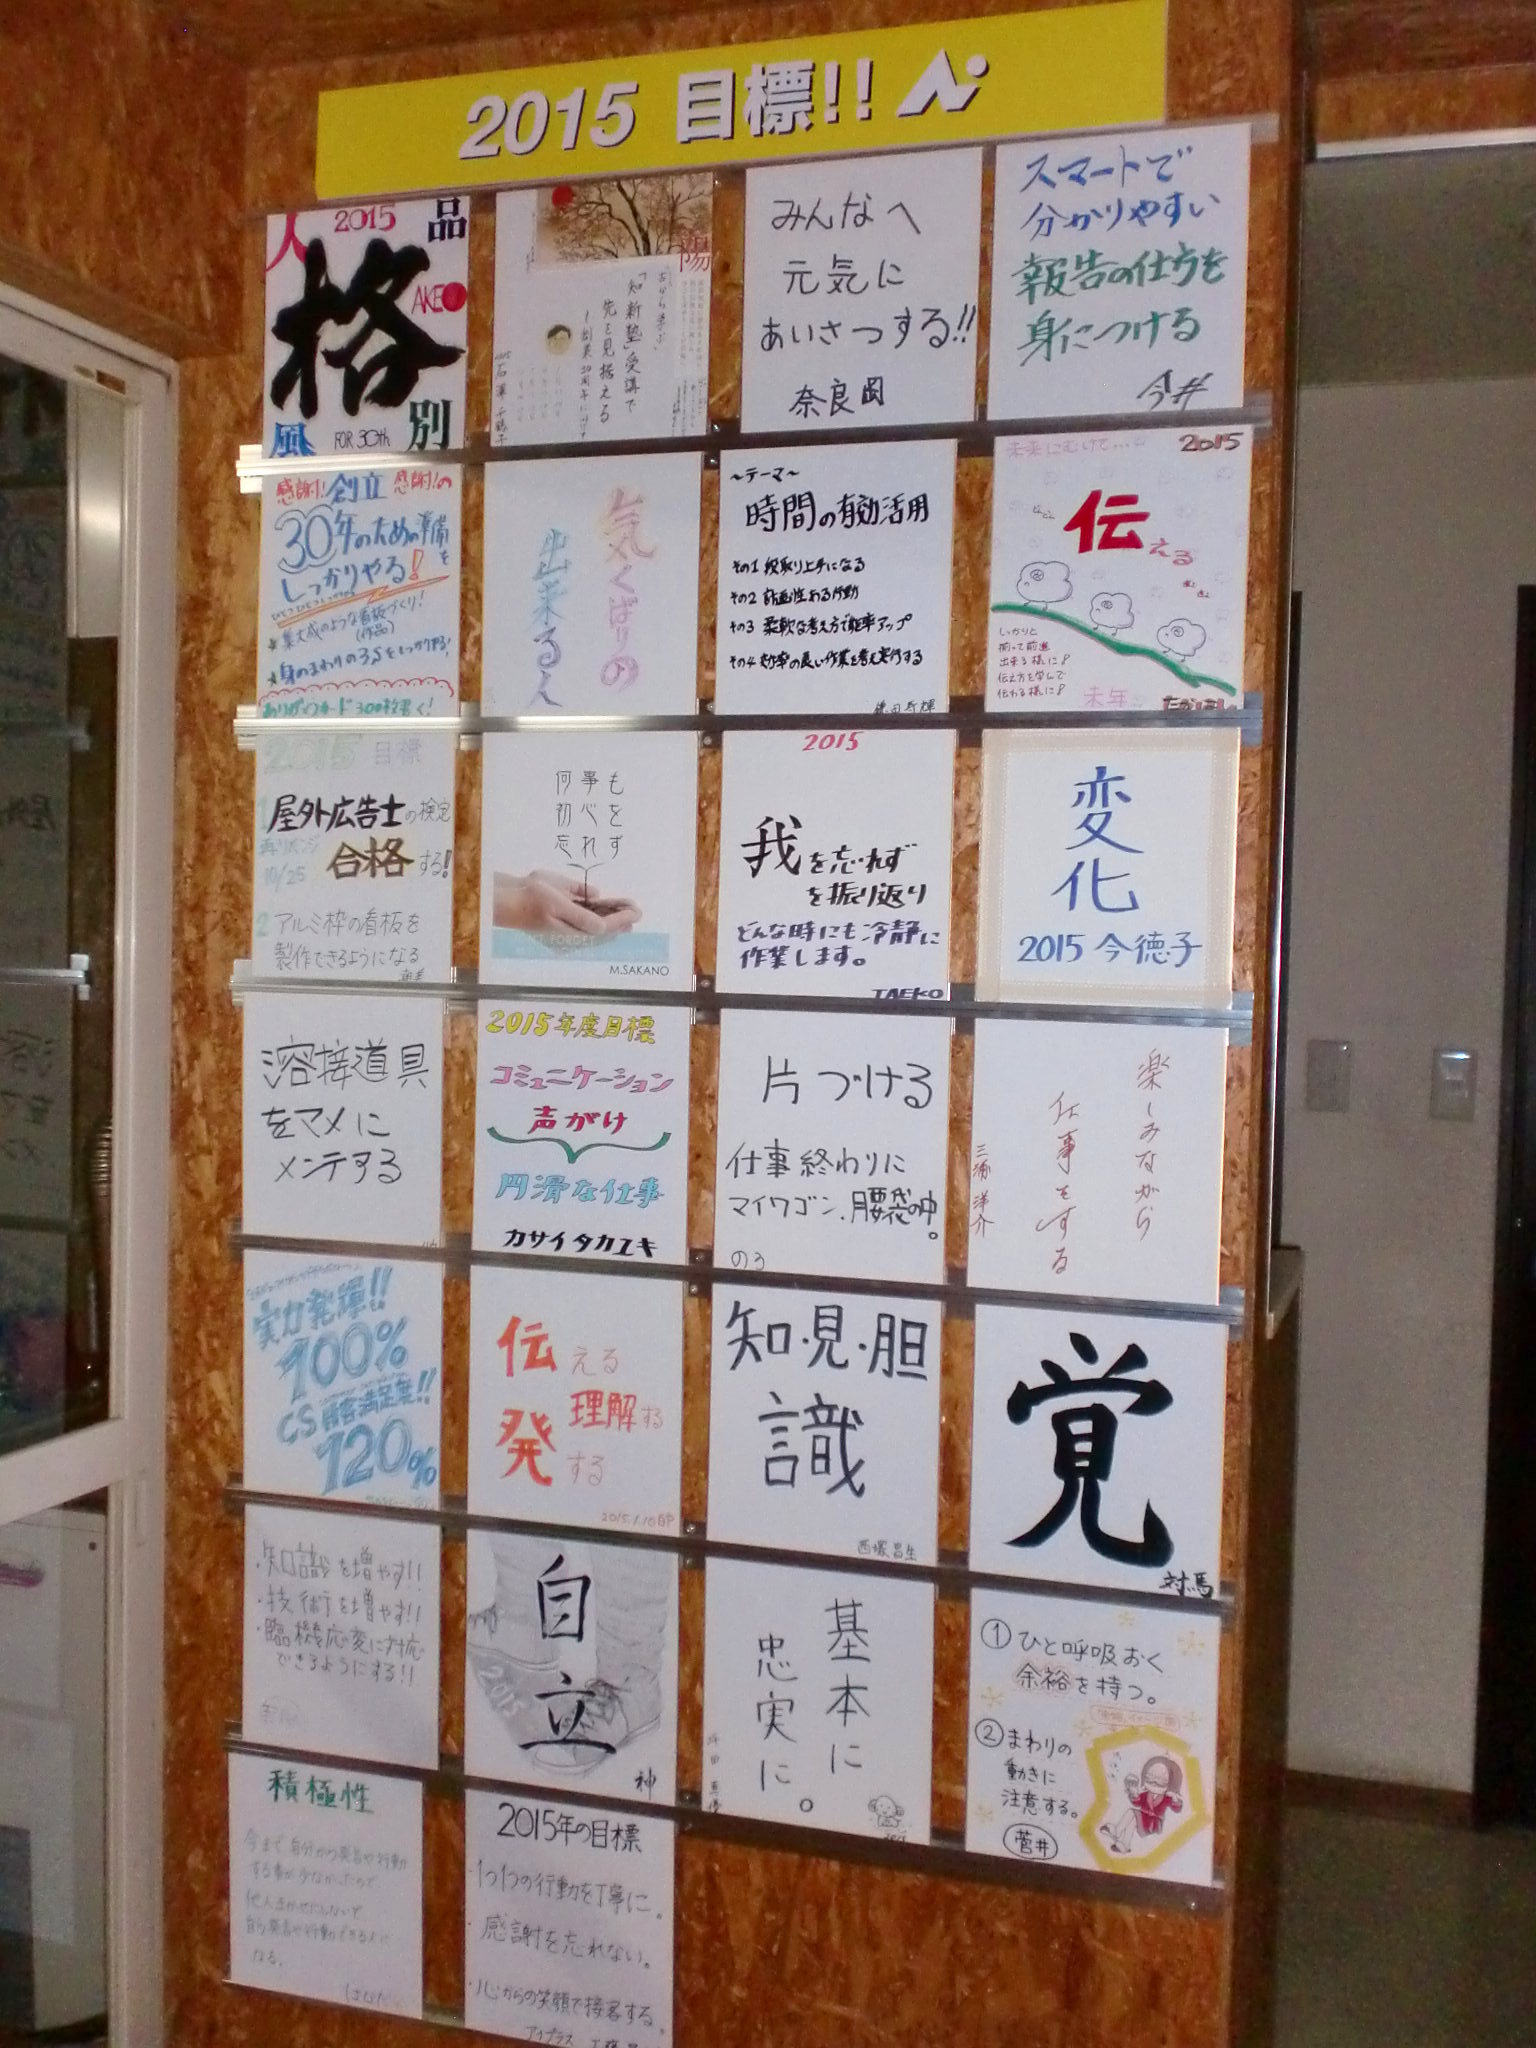 2015 目標!!
人 2015 品
格
AKEO
風 FOR 30th 別
陽
古から学ぶ
「知新塾」受講で
先を見据える
みんなへ
元気に
あいさつする!!
奈良岡
スマートで
分かりやすい
報告の仕方を
身につける
今井
感謝!創立 感謝!の
30年のための準備を
しっかりやる!
★集大成のような看板づくり!
(作品)
★身のまわりの3Sをしっかりやる!
ありがとうカード300枚書く!
気くばりの
出来る人
〜テーマ〜
時間の有効活用
その1 段取り上手になる
その2 計画性ある行動
その3 柔軟な考え方で能率アップ
その4 効率の良い作業を考え実行する
未来にむけて… 2015
伝える
しっかりと
揃って前進
出来る様に!
伝え方を学んで
伝わる様に!
未年
2015 目標
1 屋外広告士の検定
再リベンジ
10/25 合格する!
2 アルミ枠の看板を
製作できるようになる
何事も
初心を
忘れず
M.SAKANO
2015
我を忘れず
を振り返り
どんな時にも冷静に
作業します。
TAEKO
変化
2015 今徳子
溶接道具
をマメに
メンテする
2015年度目標
コミュニケーション
声がけ
円滑な仕事
カサイタカユキ
片づける
仕事終わりに
マイワゴン、腰袋の中。
のろ
楽しみながら
仕事をする
三浦洋介
実力発揮!!
100%
CS顧客満足度!!
120%
伝える
理解する
発する
2015.1.10
知・見・胆
識
西塚昌生
覚
対馬
・知識を増やす!!
・技術を増やす!!
・臨機応変に対応
できるようにする!!
自立
2015
神
基本に
忠実に。
①ひと呼吸おく
余裕を持つ。
②まわりの
動きに
注意する。
菅井
積極性
今まで自分から発言や行動
する事が少なかったので、
他人まかせにしないで
自ら発言や行動できる人に
なる。
2015年の目標
・1つ1つの行動を丁寧に。
・感謝を忘れない。
・心からの笑顔で接客する。
アイプラス